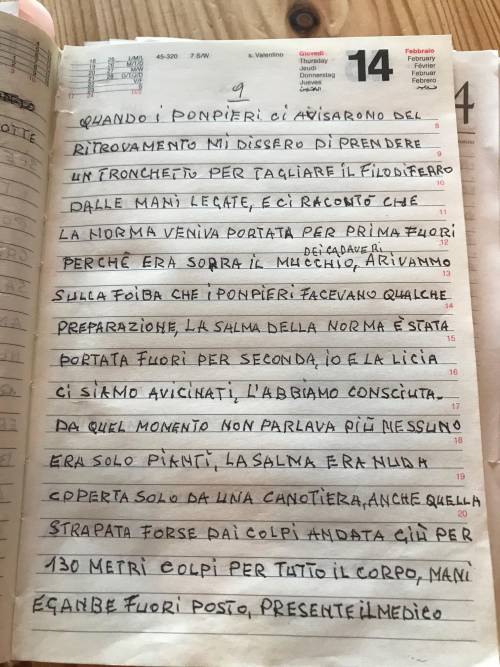 45-320 7 S/W s. Valentino
Giovedì
Thursday
Jeudi
Donnerstag
Jueves
14
Febbraio
February
Février
Februar
Febrero
9
QUANDO i PONPIERI CI AVISARONO DEL
8
RITROVAMENTO MI DISSERO DI PRENDERE
9
UN TRONCHETTO PER TAGLIARE IL FILODIFERRO
10
DALLE MANI LEGATE, E CI RACONTÒ CHE
11
LA NORMA VENIVA PORTATA PER PRIMA FUORI
12
DEI CADAVERI
PERCHÈ ERA SOPRA IL MUCCHIO, ARIVAMMO
13
SULLA FOIBA CHE i PONPIERI FACEVANO QUALCHE
14
PREPARAZIONE, LA SALMA DELLA NORMA È STATA
15
PORTATA FUORI PER SECONDA, IO E LA LICIA
16
CI SIAMO AVICINATI, L'ABBIAMO CONSCIUTA.
17
DA QUEL MOMENTO NON PARLAVA PIÙ NESSUNO
18
ERA SOLO PIANTI, LA SALMA ERA NUDA
19
COPERTA SOLO DA UNA CANOTIERA, ANCHE QUELLA
20
STRAPATA FORSE DAI COLPI ANDATA GIÙ PER
130 METRI COLPI PER TUTTO IL CORPO, MANI
E GANBE FUORI POSTO, PRESENTE IL MEDICO
OTTE
4